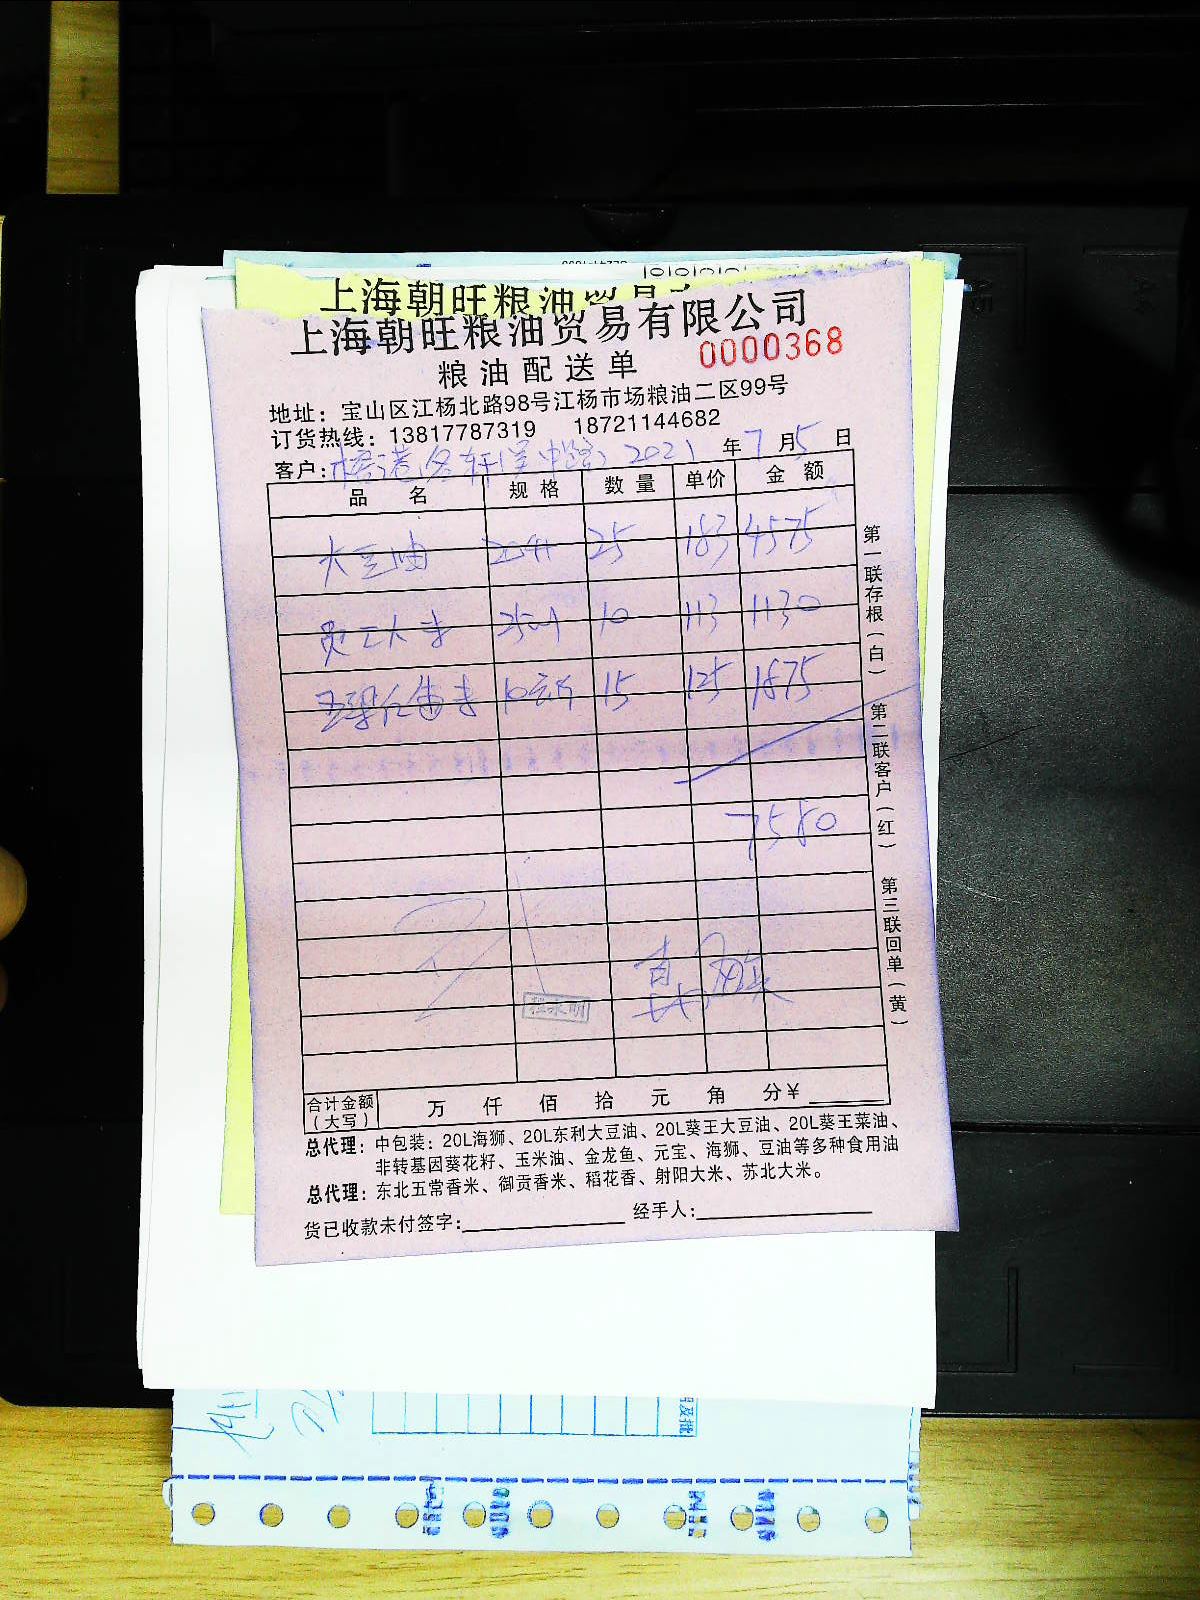 上海朝旺粮油贸易有限公司
0000368
粮油配送单
地址：宝山区江杨北路98号江杨市场粮油二区99号
订货热线：13817787319 18721144682
客户： 2021 年 7 月 5 日
品名 规格 数量 单价 金额
大豆油 25 183 4575
员工大米 10 113 1130
10公斤 15 125 1875
7580
程永明
合计金额（大写） 万 仟 佰 拾 元 角 分￥
总代理：中包装：20L海狮、20L东利大豆油、20L葵王大豆油、20L葵王菜油、
非转基因葵花籽、玉米油、金龙鱼、元宝、海狮、豆油等多种食用油
总代理：东北五常香米、御贡香米、稻花香、射阳大米、苏北大米。
货已收款未付签字： 经手人：
第一联存根（白）
第二联客户（红）
第三联回单（黄）